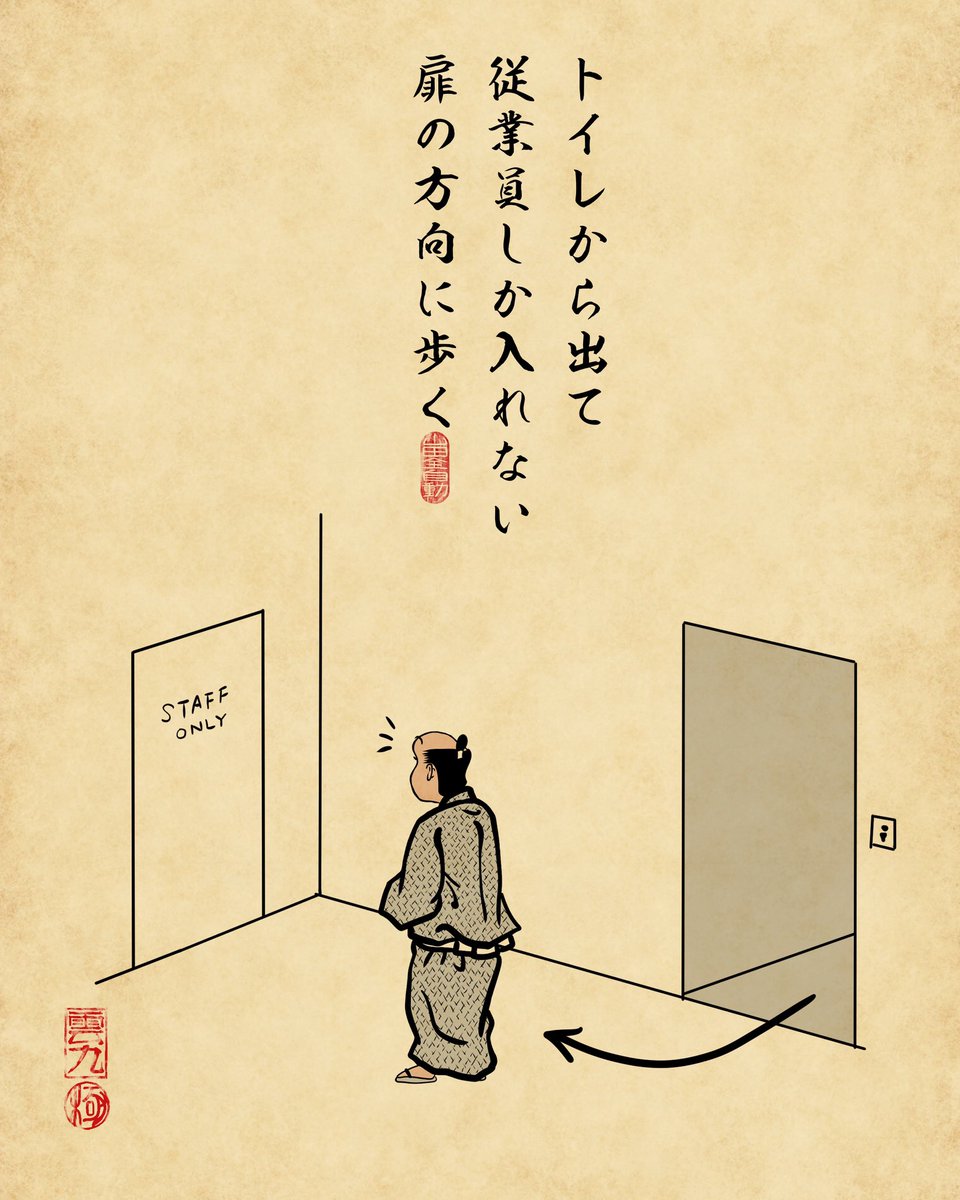 トイレから出て
従業員しか入れない
扉の方向に歩く
STAFF
ONLY